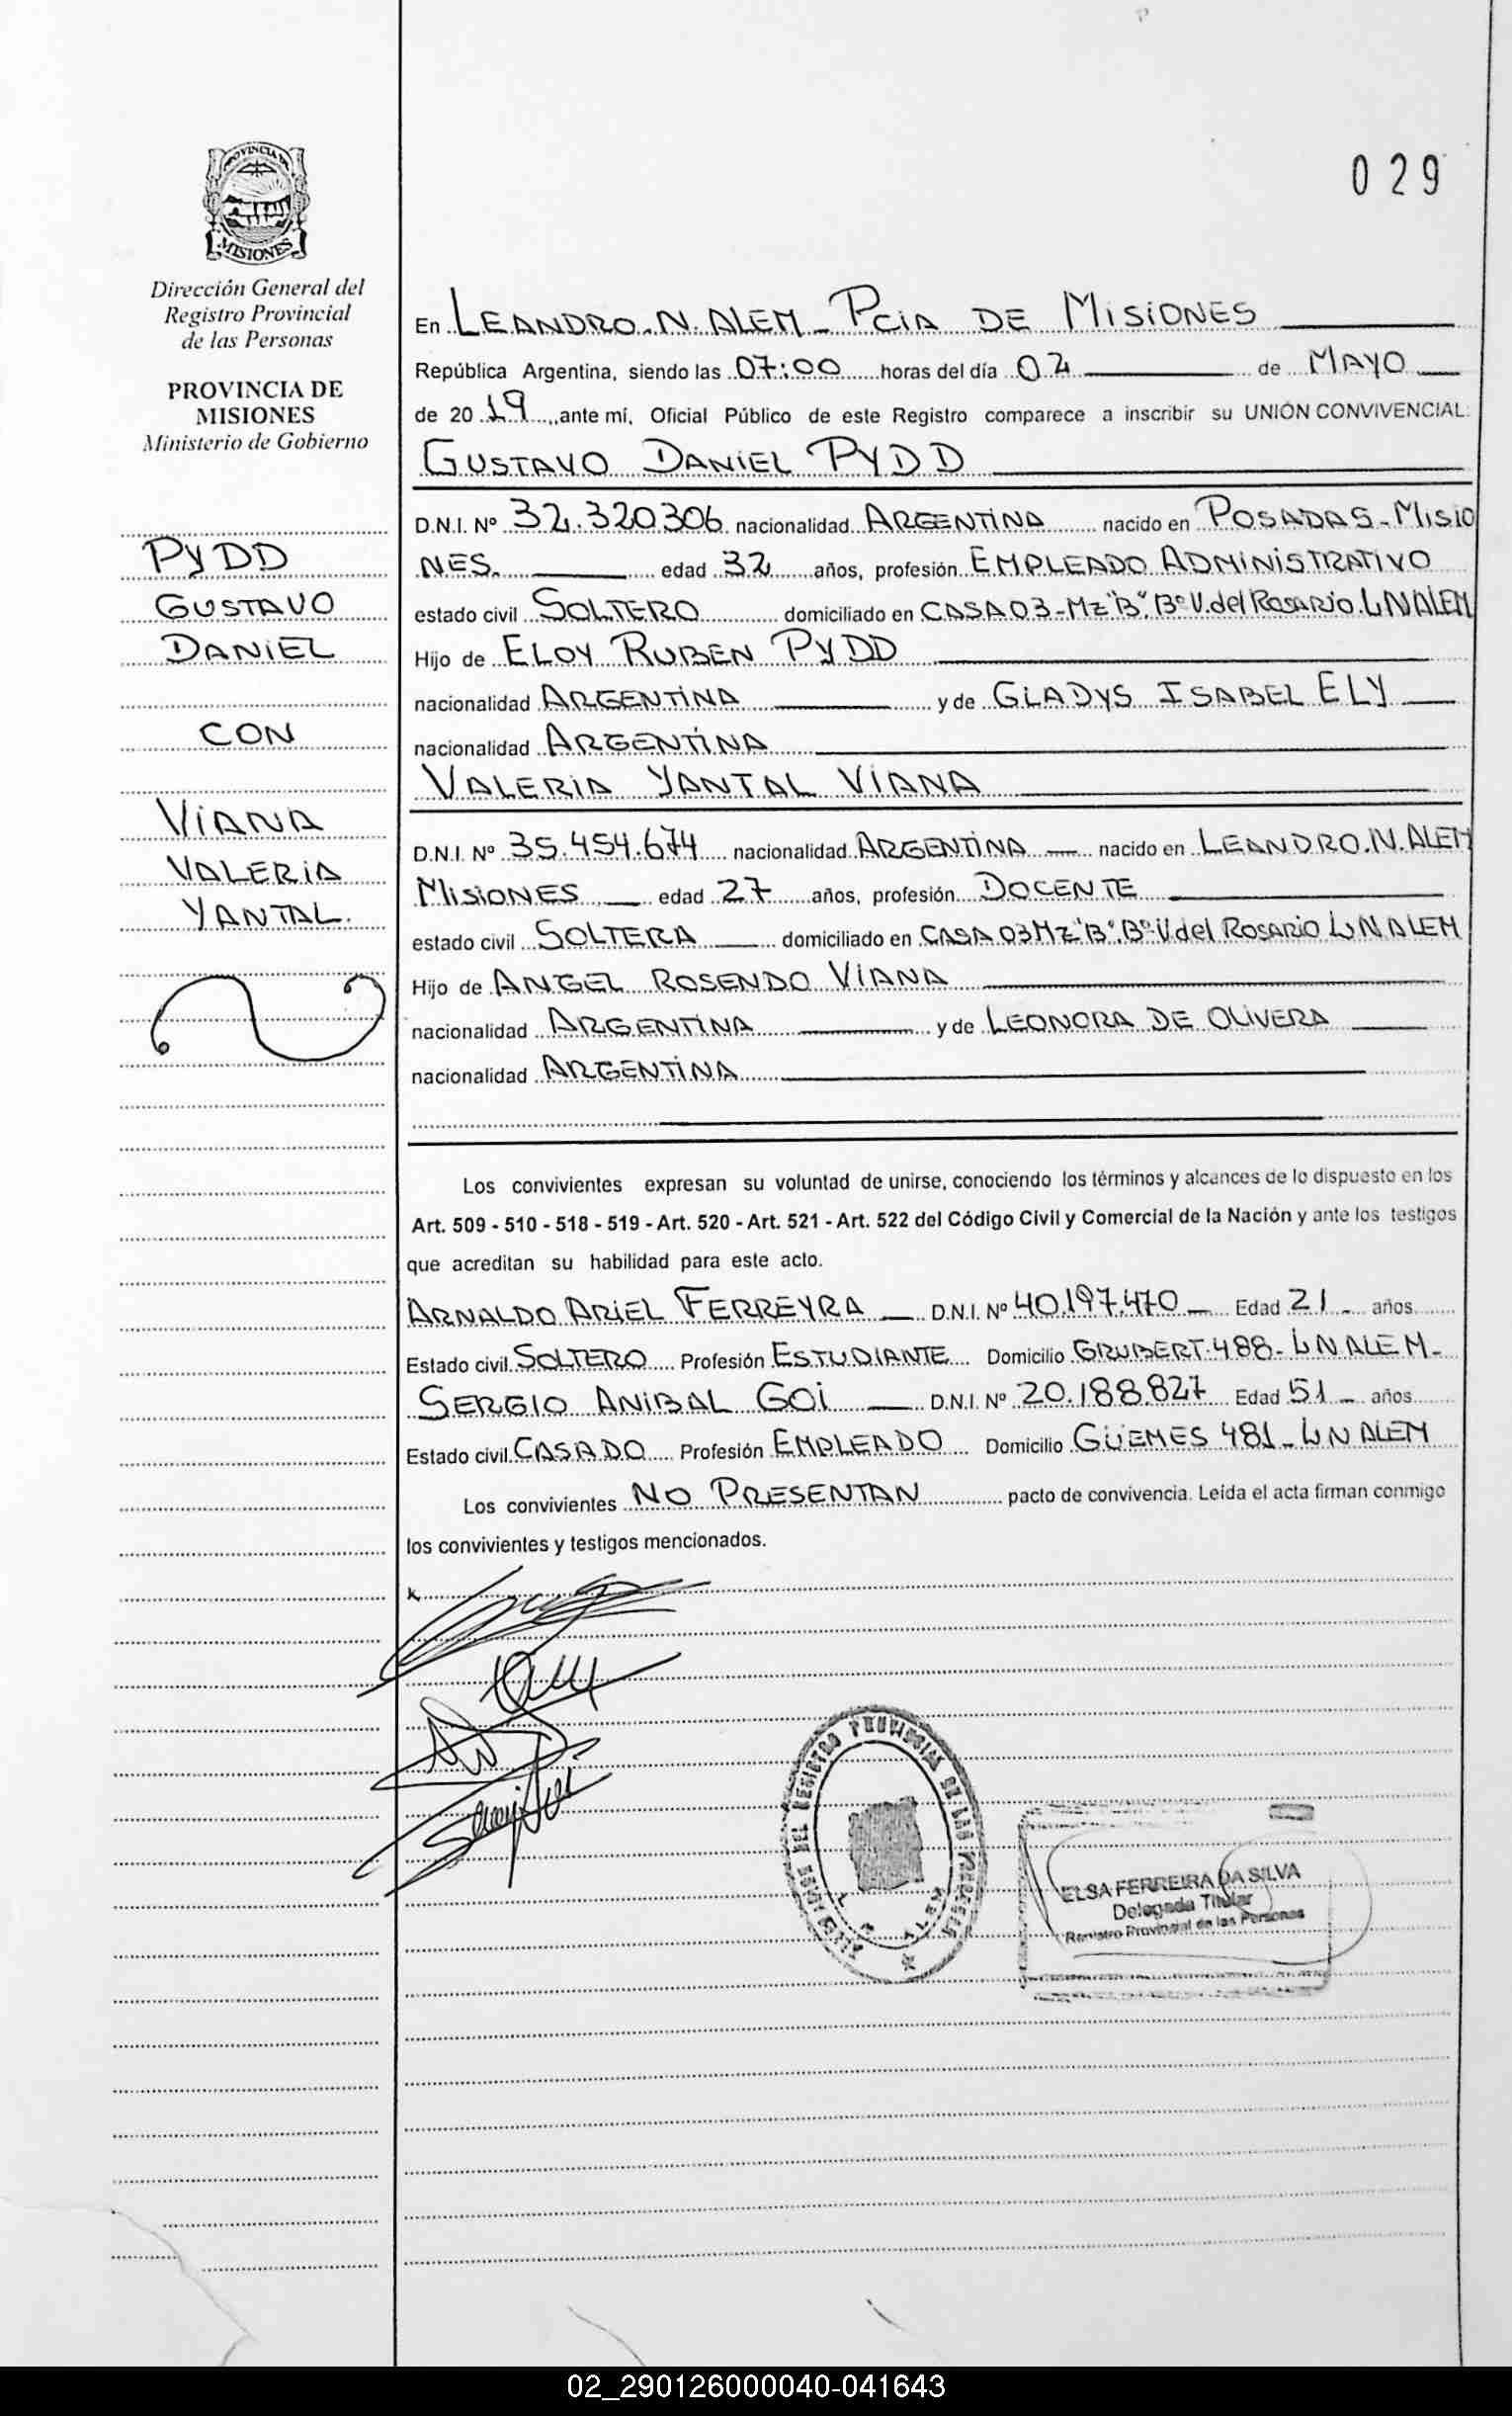 029
PROVINCIA DE
MISIONES
Dirección General del
Registro Provincial
de las Personas
PROVINCIA DE
MISIONES
Ministerio de Gobierno
PYDD
GUSTAVO
DANIEL
CON
VIANA
VALERIA
YANTAL.
En LEANDRO.N.ALEM - PCIA DE MISIONES
República Argentina, siendo las 07:00 horas del día 02 de MAYO
de 20 19, ante mí, Oficial Público de este Registro comparece a inscribir su UNIÓN CONVIVENCIAL:
GUSTAVO DANIEL PYDD
D.N.I. Nº 32.320.306 nacionalidad ARGENTINA nacido en POSADAS - MISIO
NES. edad 32 años, profesión EMPLEADO ADMINISTRATIVO
estado civil SOLTERO domiciliado en CASA 03 - Mz "B". Bº V. del ROSARIO. L N ALEM
Hijo de ELOY RUBEN PYDD
nacionalidad ARGENTINA y de GLADYS ISABEL ELY
nacionalidad ARGENTINA
VALERIA YANTAL VIANA
D.N.I. Nº 35.454.674 nacionalidad ARGENTINA nacido en LEANDRO.N.ALEM
MISIONES edad 27 años, profesión DOCENTE
estado civil SOLTERA domiciliado en CASA 03 Mz "B". Bº V. del ROSARIO L N ALEM
Hijo de ANGEL ROSENDO VIANA
nacionalidad ARGENTINA y de LEONORA DE OLIVERA
nacionalidad ARGENTINA
Los convivientes expresan su voluntad de unirse, conociendo los términos y alcances de lo dispuesto en los
Art. 509 - 510 - 518 - 519 - Art. 520 - Art. 521 - Art. 522 del Código Civil y Comercial de la Nación y ante los testigos
que acreditan su habilidad para este acto.
ARNALDO ARIEL FERREYRA D.N.I. Nº 40.197.470 Edad 21 años
Estado civil SOLTERO Profesión ESTUDIANTE Domicilio GRUBERT 488 - L N ALEM -
SERGIO ANIBAL GOI D.N.I. Nº 20.188.827 Edad 51 años
Estado civil CASADO Profesión EMPLEADO Domicilio GÜEMES 481 - L N ALEM
Los convivientes NO PRESENTAN pacto de convivencia. Leída el acta firman conmigo
los convivientes y testigos mencionados.
ELSA FERREIRA DA SILVA
Delegada Titular
Registro Provincial de las Personas
02_290126000040-041643